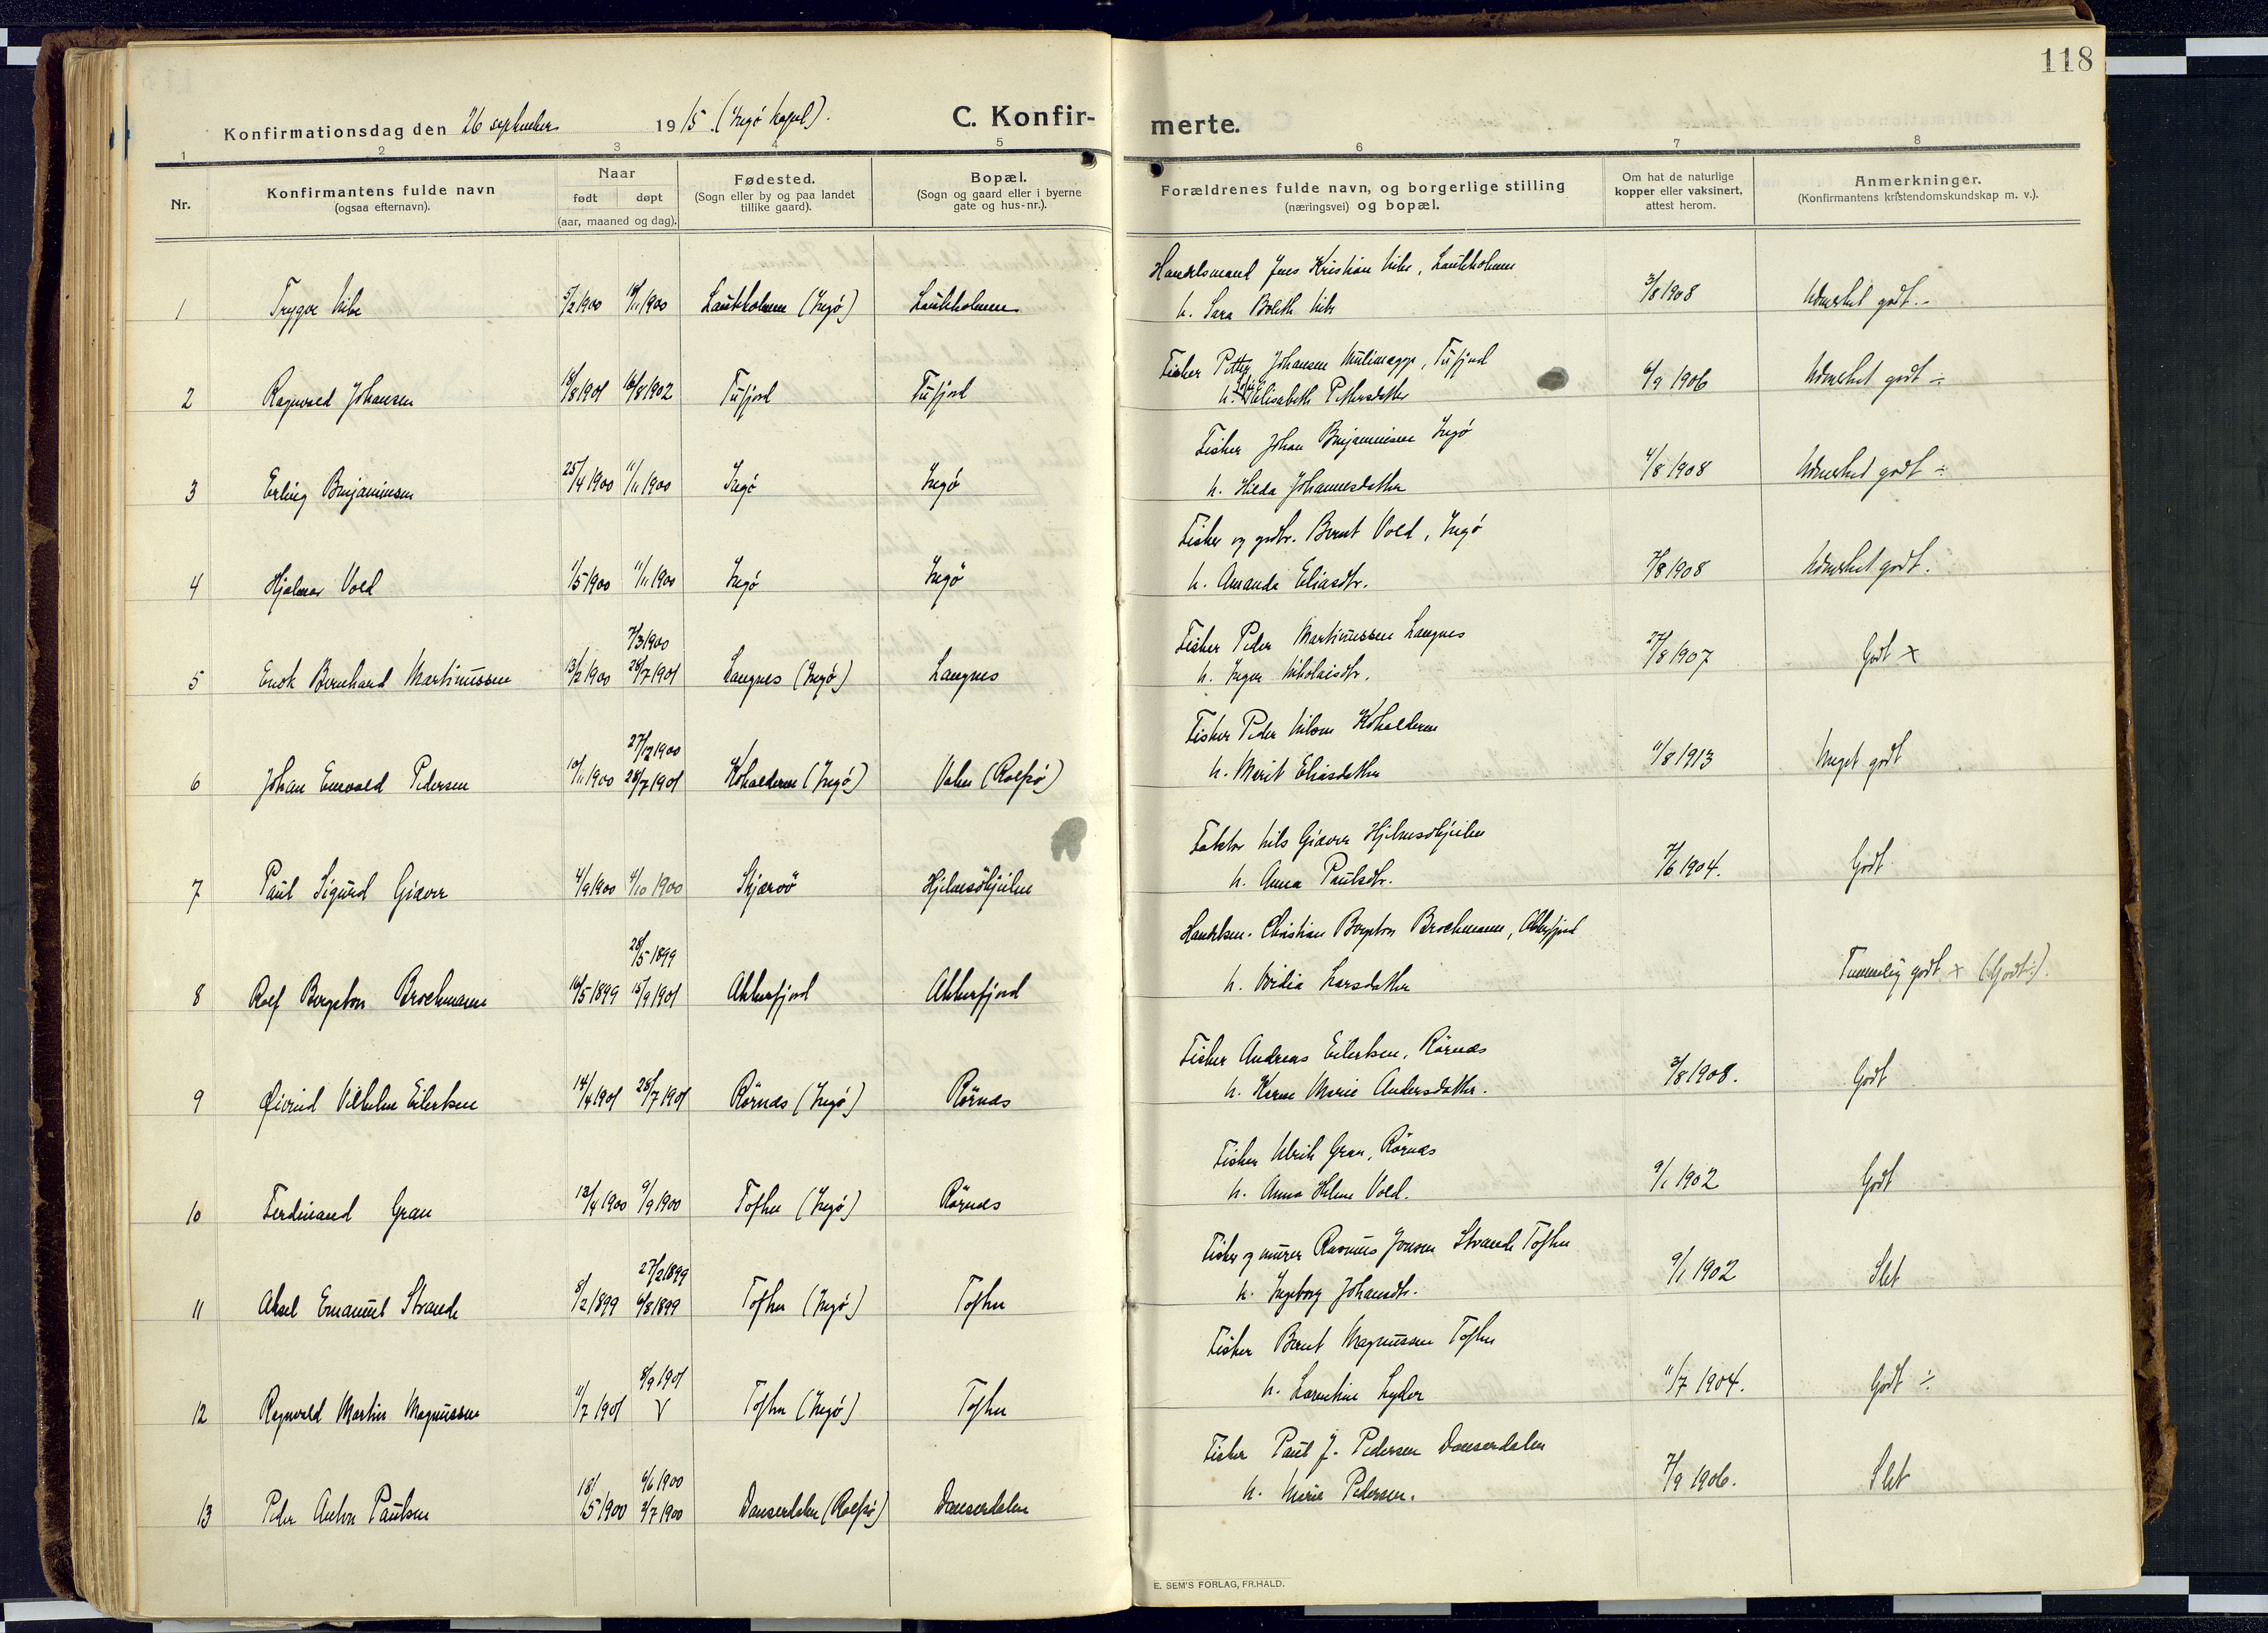 118
Konfirmationsdag den 26 september 1915. (Ingö kapel).
C. Konfir-
merte.
1 2 3 4 5 6 7 8
Nr.
Konfirmantens fulde navn
(ogsaa efternavn).
Naar
født døpt
(aar, maaned og dag).
Fødested.
(Sogn eller by og paa landet
tillike gaard).
Bopæl.
(Sogn og gaard eller i byerne
gate og hus-nr.).
Forældrenes fulde navn, og borgerlige stilling
(næringsvei) og bopæl.
Om hat de naturlige
kopper eller vaksinert,
attest herom.
Anmerkninger.
(Konfirmantens kristendomskundskap m. v.).
Handelsmand Jens Kristian Nibe, Laukholmen
1 Trygve Nibe 5/2 1900 1900 Laukholmen (Ingö) Laukholmen h. Sara Nibe 3/8 1908 Udmerket godt.
Fisker Johansen Tufjord
2 Ragnvald Johansen 1901 1902 Tufjord Tufjord h. Elisabeth Pettersdatter 1906 Udmerket godt ÷
Fisker Johan Benjaminsen Ingö
3 Erling Benjaminsen 25/4 1900 11/11 1900 Ingö Ingö h. Hilda Johannesdatter 4/8 1908 Udmerket godt ÷
Fisker og gdbr. Bernt Vold, Ingö
4 Hjalmar Vold 1/5 1900 11/11 1900 Ingö Ingö h. Amanda Eliasdtr. 1908 Udmerket godt.
Fisker Peder Martinussen Langnes
7/3 1900
5 Enok Bernhard Martinussen 13/2 1900 28/7 1901 Langnes (Ingö) Langnes h. Inger Nikolaisdtr. 27/8 1907 Godt x
Fisker Peder Nilsen
27/12 1900
6 Johan Enevald Pedersen 10/11 1900 28/7 1901 (Ingö) (Rolfsö) h. Marit Eliasdatter 11/8 1913 Meget godt
Faktor Nils Giæver Hjelmsökjeilen
7 Paul Sigurd Giæver 4/9 1900 4/10 1900 Skjærvö Hjelmsökjeilen h. Anna Paulsdtr. 7/6 1904. Godt
Handelsm. Christian Bergeton Brochmann, Akkerfjord
28/5 1899
8 Rolf Bergeton Brochmann 16/5 1899 15/9 1901 Akkerfjord Akkerfjord h. Larsdatter Temmelig godt x (Godt ÷).
Fisker Andreas Eilertsen, Rörnæs
9 Øivind Vilhelm Eilertsen 14/4 1901 28/7 1901 Rörnæs (Ingö) Rörnæs h. Karen Marie Andersdatter. 3/8 1908. Godt
Fisker Ulrik Gran, Rörnæs
10 Ferdinand Gran 12/4 1900 9/9 1900 Toften (Ingö) Rörnæs h. Anna Helene Vold. 9/1 1902 Godt
Fisker og murer Rasmus Jonsen Strande Toften
27/2 1899
11 Aksel Emanuel Strande 8/2 1899 6/8 1899 Toften (Ingö) Toften h. Ingeborg Johansdtr. 9/1 1902 Slet
Fisker Bernt Magnussen Toften
8/9 1901
12 Ragnvald Martin Magnussen 11/7 1901 V Toften (Ingö) Toften h. Laurentine Lyder 11/7 1904. Godt ÷
Fisker Paul J. Pedersen Danserdalen
6/6 1900
13 Peder Anton Paulsen 18/5 1900 2/7 1900 Danserdalen (Rolfsö) Danserdalen h. Maria Pedersen. 7/9 1906. Slet
E. SEM'S FORLAG, FR.HALD.